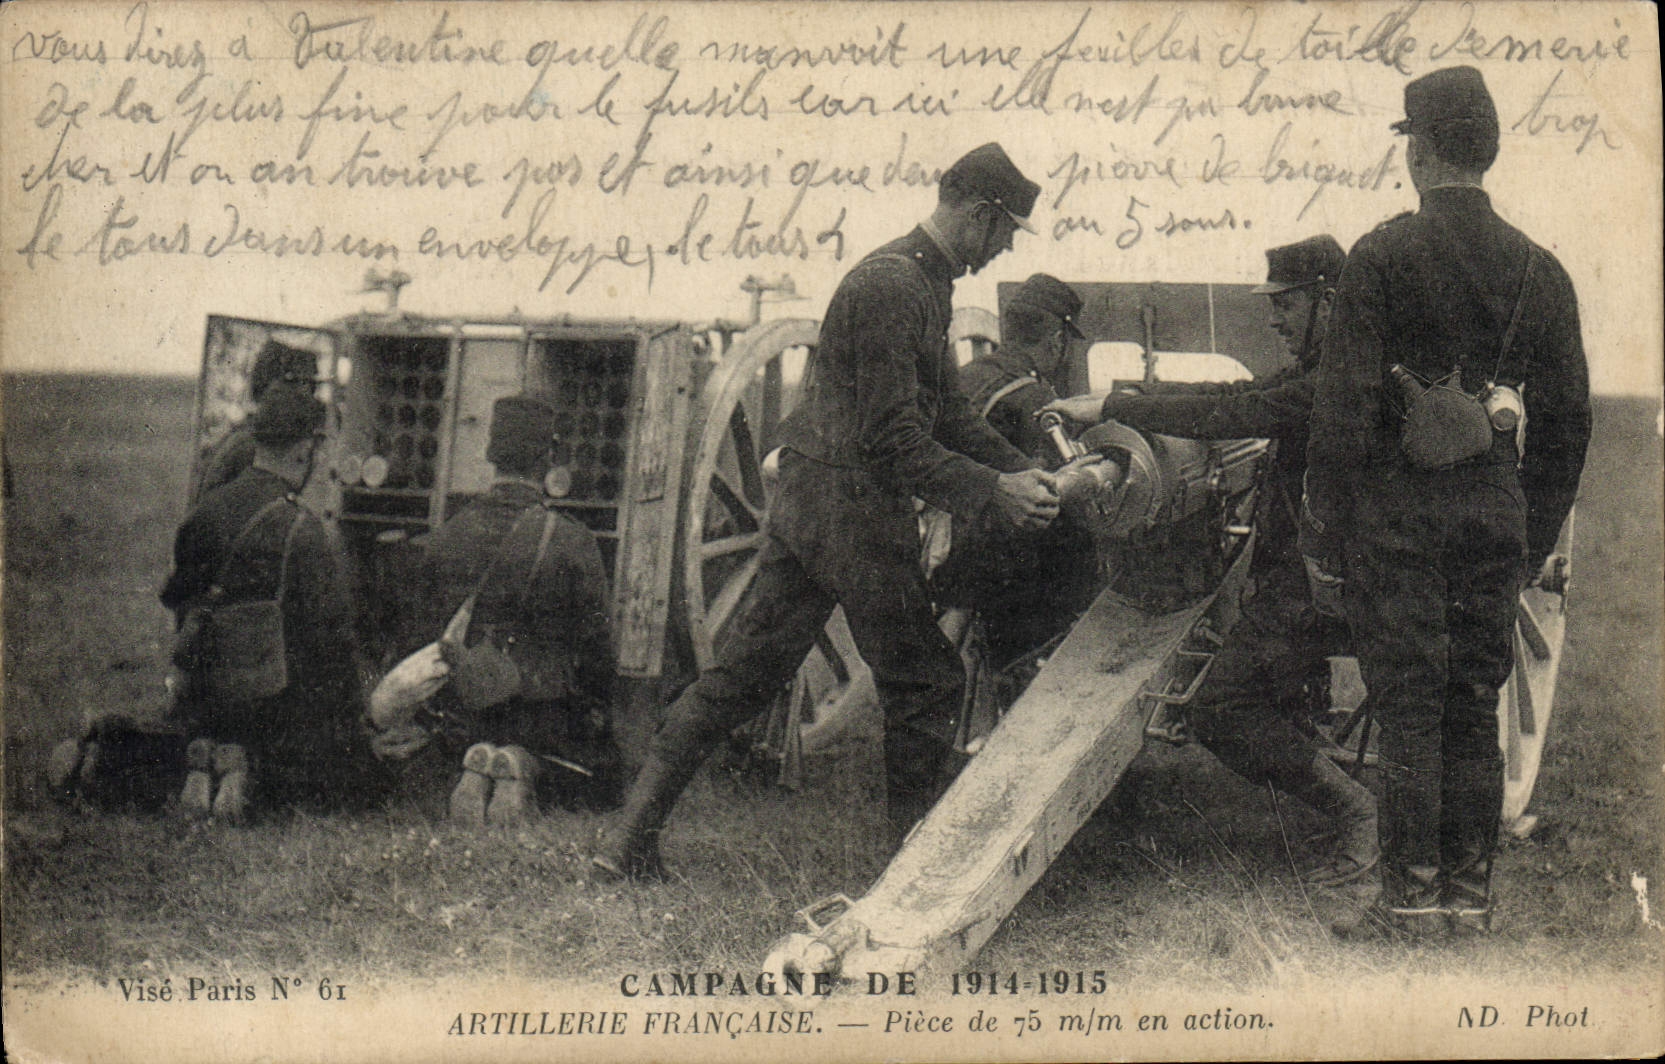 vous direz a Valentine quelle manvoit une feuilles de toille d'emerie
de la plus fine pour le fusils car ici elle nest pa bonne trop
cher et on an trouve pas et ainsi que deux pierre de briquet.
le tous dans un enveloppe, le tous 4 ou 5 sous.
Visé Paris N° 61
CAMPAGNE DE 1914-1915
ARTILLERIE FRANÇAISE. — Pièce de 75 m/m en action.
ND Phot